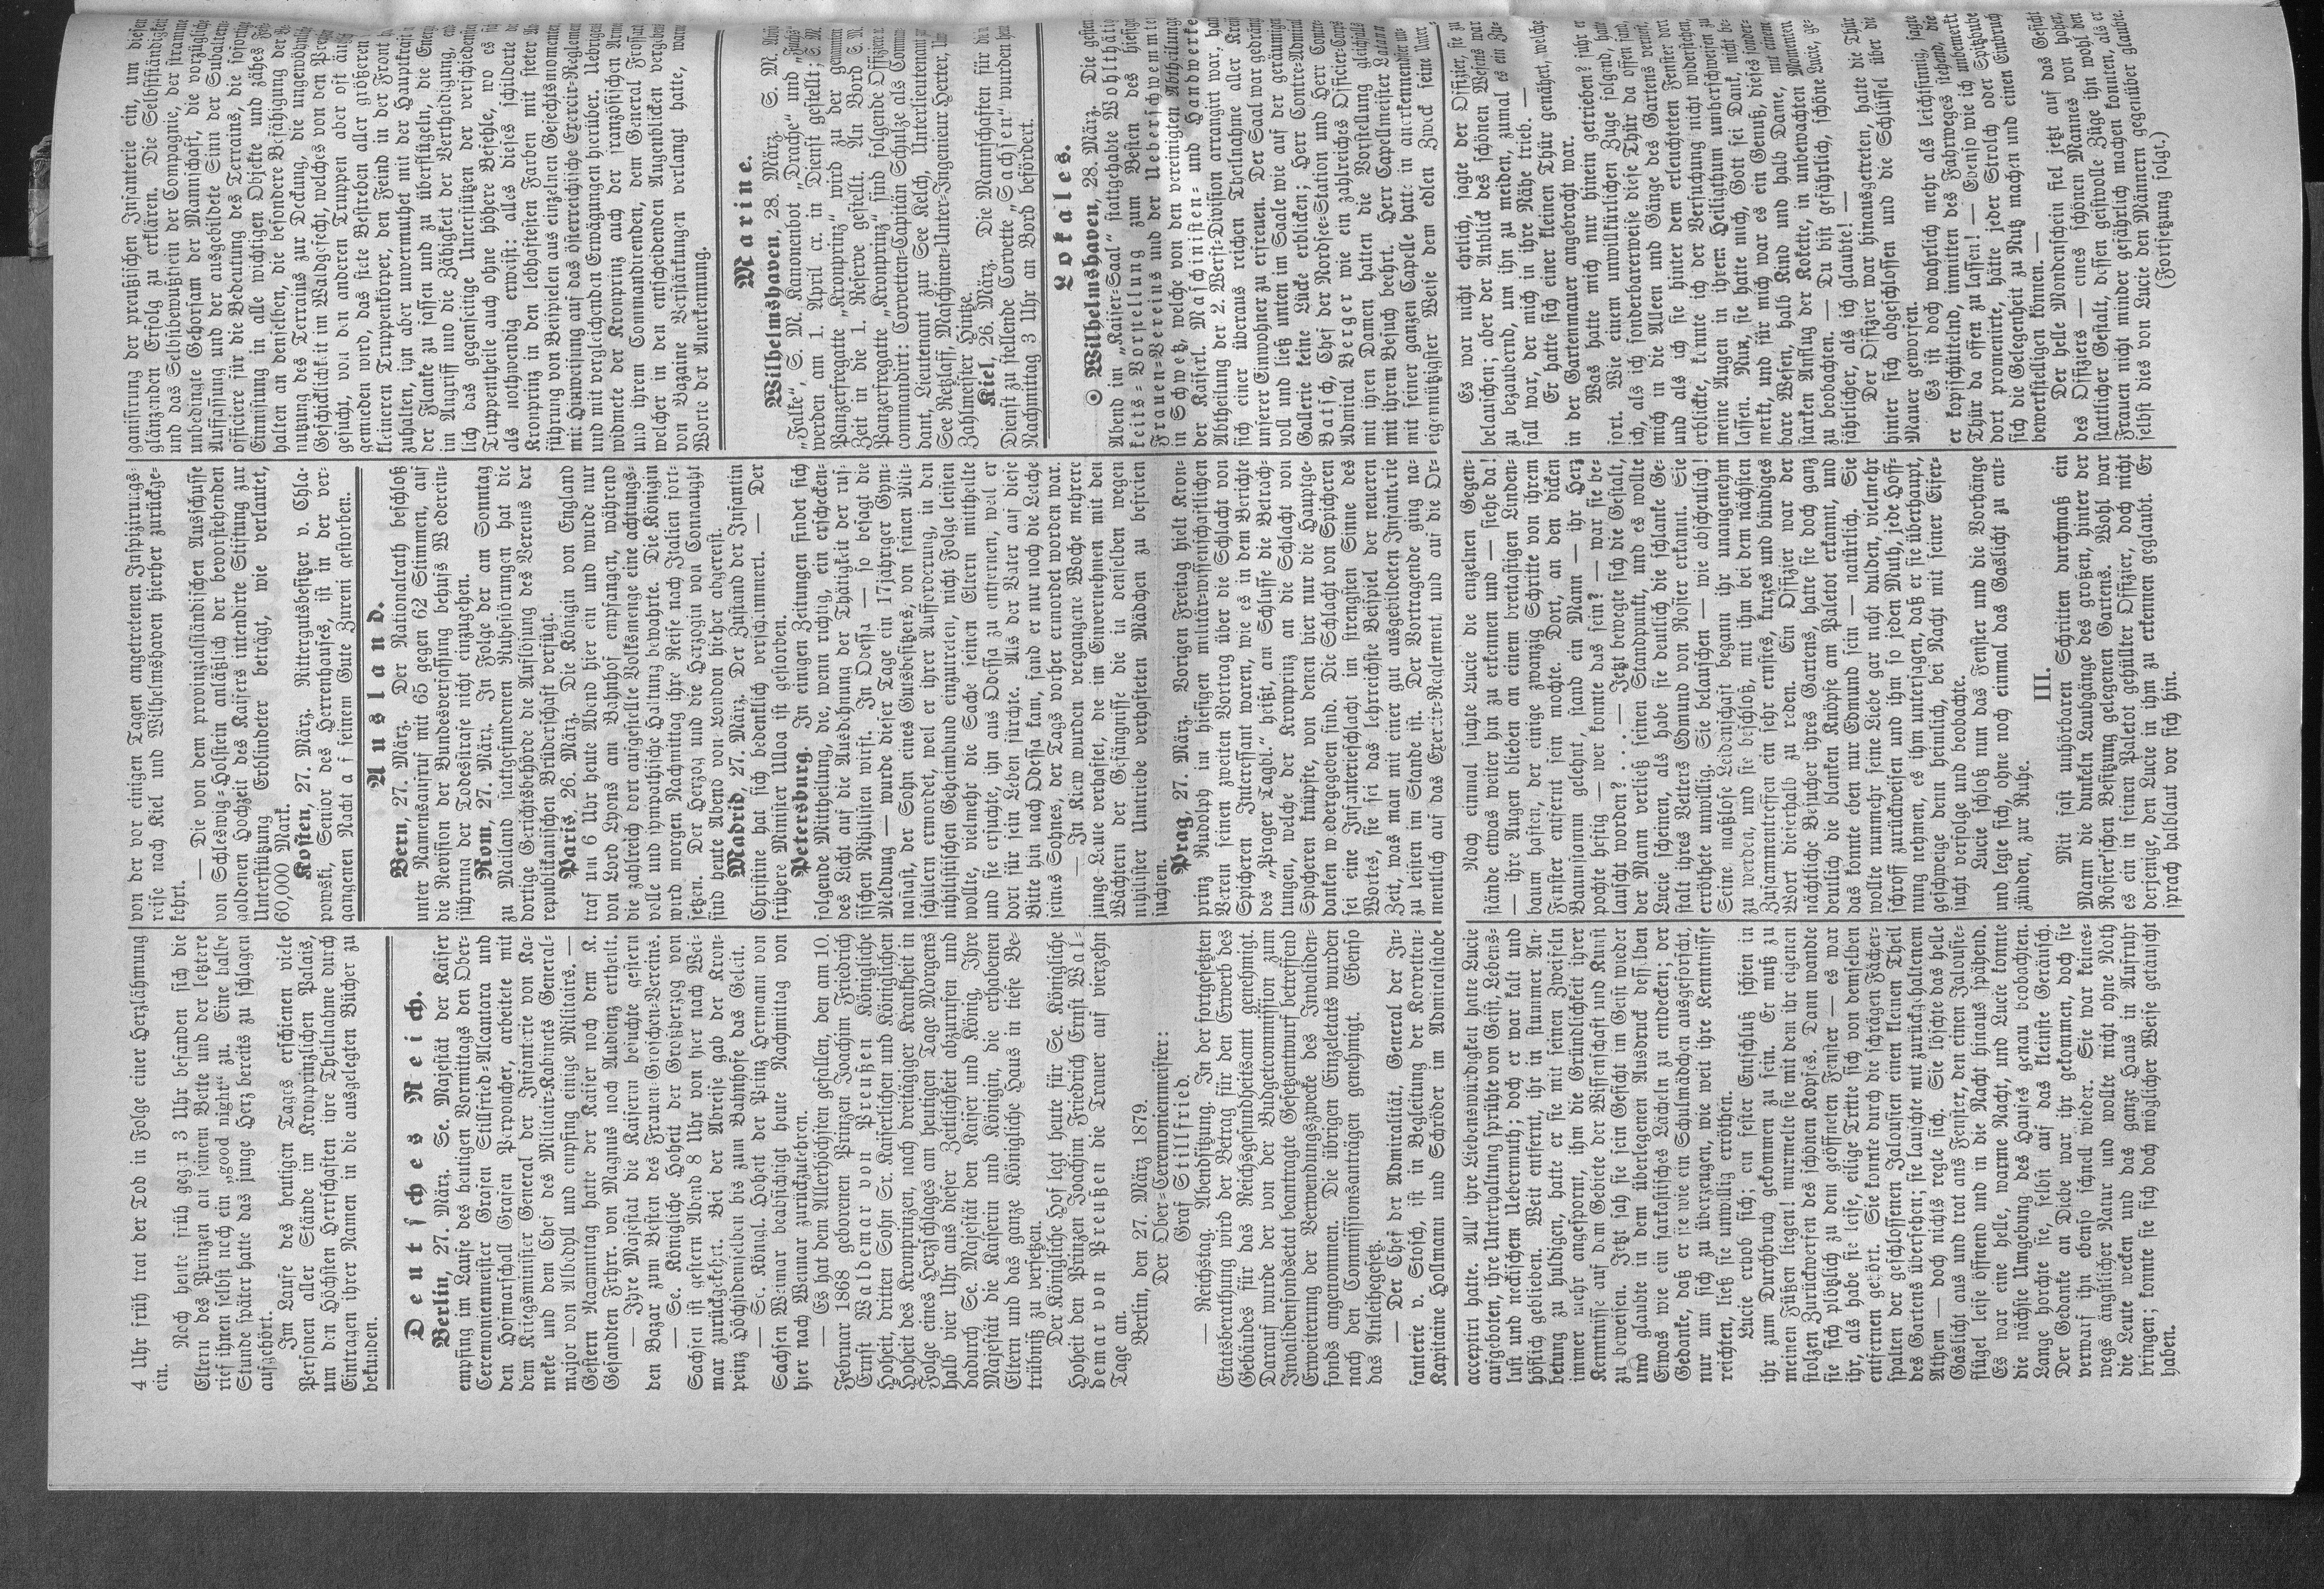 4 Uhr früh trat der Tod in Folge einer Herzlähmung
ein.
Noch heute früh gegen 3 Uhr befanden sich die
Eltern des Prinzen an seinem Bette und der letztere
rief ihnen selbst noch ein „good night“ zu. Eine halbe
Stunde später hatte das junge Herz bereits zu schlagen
aufgehört.
Im Laufe des heutigen Tages erschienen viele
Personen aller Stände im Kronprinzlichen Palais,
um den Höchsten Herrschaften ihre Theilnahme durch
Eintragen ihrer Namen in die ausgelegten Bücher zu
bekunden.
Deutsches Reich.
Berlin, 27. März. Se. Majestät der Kaiser
empfing im Laufe des heutigen Vormittags den Ober-
Ceremonienmeister Grafen Stillfried-Alcantara und
den Hofmarschall Grafen Perponcher, arbeitete mit
dem Kriegsminister General der Infanterie von Ka-
meke und dem Chef des Militair-Kabinets General-
major von Albedyll und empfing einige Militairs. —
Gestern Nachmittag hatte der Kaiser noch dem K.
Gesandten Frhr. von Magnus noch Audienz ertheilt.
— Ihre Majestät die Kaiserin besuchte gestern
den Bazar zum Besten des Frauen-Groschen-Vereins.
— Se. Königliche Hoheit der Großherzog von
Sachsen ist gestern Abend 8 Uhr von hier nach Wei-
mar zurückgekehrt. Bei der Abreise gab der Kron-
prinz Höchstdemselben bis zum Bahnhofe das Geleit.
— Se. Königl. Hoheit der Prinz Hermann von
Sachsen Weimar beabsichtigt heute Nachmittag von
hier nach Weimar zurückzukehren.
— Es hat dem Allerhöchsten gefallen, den am 10.
Februar 1868 geborenen Prinzen Joachim Friedrich
Ernst Waldemar von Preußen Königliche
Hoheit, dritten Sohn Sr. Kaiserlichen und Königlichen
Hoheit des Kronprinzen, nach dreitägiger Krankheit in
Folge eines Herzschlages am heutigen Tage Morgens
halb vier Uhr aus dieser Zeitlichkeit abzurufen und
dadurch Se. Majestät den Kaiser und König, Ihre
Majestät die Kaiserin und Königin, die erhabenen
Eltern und das ganze Königliche Haus in tiefe Be-
trübniß zu versetzen.
Der Königliche Hof legt heute für Se. Königliche
Hoheit den Prinzen Joachim Friedrich Ernst Wal-
demar von Preußen die Trauer auf vierzehn
Tage an.
Berlin, den 27. März 1879.
Der Ober-Ceremonienmeister:
Graf Stillfried.
— Reichstag. Abendsitzung. In der fortgesetzten
Etatsberathung wird der Betrag für den Erwerb des
Gebäudes für das Reichsgesundheitsamt genehmigt.
Darauf wurde der von der Budgetcommission zum
Invalidenfondsetat beantragte Gesetzentwurf betreffend
Erweiterung der Verwendungszwecke des Invaliden-
fonds angenommen. Die übrigen Einzeletats wurden
nach den Commissionsanträgen genehmigt. Ebenso
das Anleihegesetz.
— Der Chef der Admiralität, General der In-
fanterie v. Stosch, ist in Begleitung der Korvetten-
Kapitaine Hollmann und Schröder im Admiralstabe
von der vor einigen Tagen angetretenen Inspizirungs-
reise nach Kiel und Wilhelmshaven hierher zurückge-
kehrt.
— Die von dem provinzialständischen Ausschusse
von Schleswig-Holstein anläßlich der bevorstehenden
goldenen Hochzeit des Kaisers intendirte Stiftung zur
Unterstützung Erblindeter beträgt, wie verlautet,
60,000 Mark.
Kosten, 27. März. Rittergutsbesitzer v. Chla-
powski, Senior des Herrenhauses, ist in der ver-
gangenen Nacht a f seinem Gute Zureni gestorben.
Ausland.
Bern, 27. März. Der Nationalrath beschloß
unter Namensaufruf mit 65 gegen 62 Stimmen, auf
die Revision der Bundesverfassung behufs Wiederein-
führung der Todesstrafe nicht einzugehen.
Rom, 27. März. In Folge der am Sonntag
zu Mailand stattgefundenen Ruhestörungen hat die
dortige Gerichtsbehörde die Auflösung des Vereins der
republikanischen Brüderschaft verfügt.
Paris, 26. März. Die Königin von England
traf um 6 Uhr heute Abend hier ein und wurde nur
von Lord Lyons am Bahnhof empfangen, während
die zahlreich dort aufgestellte Volksmenge eine achtungs-
volle und sympathische Haltung bewahrte. Die Königin
wird morgen Nachmittag ihre Reise nach Italien fort-
setzen. Der Herzog und die Herzogin von Connaught
sind heute Abend von London hieher abgereist.
Madrid, 27. März. Der Zustand der Infantin
Christine hat sich bedenklich verschlimmert. — Der
frühere Minister Ulloa ist gestorben.
Petersburg. In einigen Zeitungen findet sich
folgende Mittheilung, die, wenn richtig, ein erschrecken-
des Licht auf die Ausdehnung der Thätigkeit der rus-
sischen Nihilisten wirft. In Odessa — so besagt die
Meldung — wurde dieser Tage ein 17jähriger Gym-
nasiast, der Sohn eines Gutsbesitzers, von seinen Mit-
schülern ermordet, weil er ihrer Aufforderung, in den
nihilistischen Geheimbund einzutreten, nicht Folge leisten
wollte, vielmehr die Sache seinen Eltern mittheilte
und sie ersuchte, ihn aus Odessa zu entfernen, weil er
dort für sein Leben fürchte. Als der Vater auf diese
Bitte hin nach Odessa kam, fand er nur noch die Leiche
seines Sohnes, der Tags vorher ermordet worden war.
— In Kiew wurden vergangene Woche mehrere
junge Leute verhaftet, die im Einvernehmen mit den
Wächtern der Gefängnisse die in denselben wegen
nihilister Umtriebe verhafteten Mädchen zu befreien
suchten.
Prag, 27. März. Vorigen Freitag hielt Kron-
prinz Rudolph im hiesigen militär-wissenschaftlichen
Verein seinen zweiten Vortrag über die Schlacht von
Spicheren. Interessant waren, wie es in dem Berichte
des „Prager Tagbl.“ heißt, am Schlusse die Betrach-
tungen, welche der Kronprinz an die Schlacht von
Spicheren knüpfte, von denen hier nur die Hauptge-
danken wiedergegeben sind. Die Schlacht von Spicheren
sei eine Infanterieschlacht im strengsten Sinne des
Wortes, sie sei das lehrreichste Beispiel der neueren
Zeit, was man mit einer gut ausgebildeten Infanterie
zu leisten im Stande ist. Der Vortragende ging na-
mentlich auf das Exerzir-Reglement und auf die Or-
ganisirung der preußischen Infanterie ein, um diesen
glänzenden Erfolg zu erklären. Die Selbstständigkeit
und das Selbstbewußtsein der Compagnie, der stramme
unbedingte Gehorsam der Mannschaft, die vorzügliche
Auffassung und der ausgebildete Sinn der Subaltern-
officiere für die Bedeutung des Terrains, die sofortige
Einnistung in alle wichtigen Objekte und zähes Fest-
halten an denselben, die besondere Befähigung der
nutzung des Terrains zur Deckung, die ungewöhnliche
Geschicklichkeit im Waldgefecht, welches von den Preu
gesucht, von den anderen Truppen aber oft äng
gemieden wird, das stete Bestreben aller größeren
kleineren Truppenkörper, den Feind in der Front
zuhalten, ihn aber unvermuthet mit der Hauptkraft
der Flanke zu fassen und zu überflügeln, die Energ
im Angriff und die Zähigkeit der Vertheidigung, end
lich das gegenseitige Unterstützen der verschiedenen
Truppentheile auch ohne höhere Befehle, wo es si
als nothwendig erweist: alles dieses schilderte
Kronprinz in den lebhaftesten Farben mit steter An
führung von Beispielen aus einzelnen Gefechtsmomenten
mit Hinweisung auf das österreichische Exercir-Reglement
und mit vergleichenden Erwägungen hierüber. Uebrigens
widmete der Kronprinz auch der französischen Armee
und ihrem Commandirenden, dem General Frossard
welcher in den entscheidenden Augenblicken vergebens
von Bazaine Verstärkungen verlangt hatte, warm
Worte der Anerkennung.
Marine.
Wilhelmshaven, 28. März. S. M. Aviso
„Falke“, S. M. Kanonenbot „Drache“ und „Fuchs“
werden am 1. April cr. in Dienst gestellt; S. M.
Panzerfregatte „Kronprinz“ wird zu der genannten
Zeit in die 1. Reserve gestellt. An Bord S. M.
Panzerfregatte „Kronprinz“ sind folgende Offiziere
commandirt: Corveten-Capitän Schulze als Comman-
dant, Lieutenant zur See Kelch, Unterlieutenant zur
See Retzlaff, Maschinen-Unter-Ingenieur Herter, Unter
Zahlmeister Hintze.
Kiel, 26. März. Die Mannschaften für den
Dienst zu stellende Corvette „Sachsen“ wurden heute
Nachmittag 3 Uhr an Bord befördert.
Lokales.
⊙ Wilhelmshaven, 28. März. Die gestern
Abend im „Kaiser-Saal“ stattgehabte Wohlthätig-
keits-Vorstellung zum Besten des hiesigen
Frauen-Vereins und der Ueberschwemmten
in Schwetz, welche von den vereinigten Abtheilungen
der Kaiserl. Maschinisten- und Handwerker-
Abtheilung der 2. Werft-Division arrangirt war, hatte
sich einer überaus reichen Theilnahme aller Kreise
unserer Einwohner zu erfreuen. Der Saal war gedrängt
voll und ließ unten im Saale wie auf der geräumigen
Gallerie keine Lücke erblicken; Herr Contre-Admiral
Batsch, Chef der Nordsee-Station und Herr Contre-
Admiral Berger wie ein zahlreiches Officier-Corps
mit ihren Damen hatten die Vorstellung gleichfalls
mit ihrem Besuch beehrt. Herr Capellmeister Latann
mit seiner ganzen Capelle hatte in anerkennender un-
eigennützigster Weise dem edlen Zweck seine Unter-
acceptirt hatte. All’ ihre Liebenswürdigkeit hatte Lucie
aufgeboten, ihre Unterhaltung sprühte von Geist, Lebens-
lust und neckischem Uebermuth; doch er war kalt und
höflich geblieben. Weit entfernt, ihr in stummer An-
betung zu huldigen, hatte er sie mit seinen Zweifeln
immer mehr angespornt, ihm die Gründlichkeit ihrer
Kenntnisse auf dem Gebiete der Wissenschaft und Kunst
zu beweisen. Jetzt sah sie sein Gesicht im Geist wieder
und glaubte in dem überlegenen Ausdruck desselben
Etwas wie ein sarkastisches Lächeln zu entdecken; der
Gedanke, daß er sie wie ein Schulmädchen ausgeforscht,
nur um sich zu überzeugen, wie weit ihre Kenntnisse
reichten, ließ sie unwillig erröthen.
Lucie erhob sich; ein fester Entschluß schien in
ihr zum Durchbruch gekommen zu sein. Er muß zu
meinen Füßen liegen! murmelte sie mit dem ihr eigenen
stolzen Zurückwerfen des schönen Kopfes. Dann wandte
sie sich plötzlich zu dem geöffneten Fenster — es war
ihr, als habe sie leise, eilige Tritte sich von demselben
entfernen gehört. Sie konnte durch die schrägen Fächer-
spalten der geschlossenen Jalousien einen kleinen Theil
des Gartens übersehen; sie lauschte mit zurückgehaltenem
Athem — doch nichts regte sich. Sie löschte das helle
Gaslicht aus und trat ans Fenster, den einen Jalousie-
flügel leise öffnend und in die Nacht hinaus spähend.
Es war eine helle, warme Nacht, und Lucie konnte
die nächste Umgebung des Hauses genau beobachten.
Lange horchte sie, selbst auf das kleinste Geräusch.
Der Gedanke an Diebe war ihr gekommen, doch sie
verwarf ihn ebenso schnell wieder. Sie war keines-
wegs ängstlicher Natur und wollte nicht ohne Noth
die Leute wecken und das ganze Haus in Aufruhr
bringen; konnte sie sich doch möglicher Weise getäuscht
haben.
Noch einmal suchte Lucie die einzelnen Gegen-
stände etwas weiter hin zu erkennen und — siehe da!
— ihre Augen blieben an einem breitastigen Linden-
baum haften, der einige zwanzig Schritte von ihrem
Fenster entfernt sein mochte. Dort, an den dicken
Baumstamm gelehnt, stand ein Mann — ihr Herz
pochte heftig — wer konnte das sein? — war sie be-
lauscht worden? . . . — Jetzt bewegte sich die Gestalt,
der Mann verließ seinen Standpunkt, und es wollte
Lucie scheinen, als habe sie deutlich die schlanke Ge-
stalt ihres Vetters Edmund von Rosier erkannt. Sie
erröthete unwillig. Sie belauschen — wie abscheulich!
Seine maßlose Leidenschaft begann ihr unangenehm
zu werden, und sie beschloß, mit ihm bei dem nächsten
Zusammentreffen ein sehr ernstes, kurzes und bündiges
Wort dieserhalb zu reden. Ein Offizier war der
nächtliche Besucher ihres Gartens, hatte sie doch ganz
deutlich die blanken Knöpfe am Paletot erkannt, und
das konnte eben nur Edmund sein — natürlich. Sie
wollte nunmehr seine Liebe gar nicht dulden, vielmehr
schroff zurückweisen und ihm so jeden Muth, jede Hoff-
nung nehmen, es ihm untersagen, daß er sie überhaupt,
geschweige denn heimlich, bei Nacht mit seiner Eifer-
sucht verfolge und beobachte.
Lucie schloß nun das Fenster und die Vorhänge
und legte sich, ohne noch einmal das Gaslicht zu ent-
zünden, zur Ruhe.
III.
Mit fast unhörbaren Schritten durchmaß ein
Mann die dunkeln Laubgänge des großen, hinter der
Rosier’schen Besitzung gelegenen Gartens. Wohl war
es ein in seinen Paletot gehüllter Offizier, doch nicht
derjenige, den Lucie in ihm zu erkennen geglaubt. Er
sprach halblaut vor sich hin.
Es war nicht ehrlich, sagte der Offizier, sie zu
belauschen; aber der Anblick des schönen Wesens war
zu bezaubernd, um ihn zu meiden, zumal es ein Zu-
fall war, der mich in ihre Nähe trieb. —
Er hatte sich einer kleinen Thür genähert, welche
in der Gartenmauer angebracht war.
Was hatte mich nur hinein getrieben? fuhr er
fort. Wie einem unwillkürlichen Zuge folgend, hatte
ich, als ich sonderbarerweise diese Thür da offen fand,
mich in die Alleen und Gänge des Gartens verirrt,
und als ich sie hinter dem erleuchteten Fenster dort
erblickte, konnte ich der Versuchung nicht widerstehen,
meine Augen in ihrem Heiligthum umherschweifen zu
lassen. Nun, sie hatte mich, Gott sei Dank, nicht be-
merkt, und für mich war es ein Genuß, dieses sonder-
bare Wesen, halb Kind und halb Dame, mit einem
starken Anflug der Kokette, in unbewachten Momenten
zu beobachten. — Du bist gefährlich, schöne Lucie, ge-
fährlicher, als ich glaubte! —
Der Offizier war hinausgetreten, hatte die Thür
hinter sich abgeschlossen und die Schlüssel über die
Mauer geworfen.
Es ist doch wahrlich mehr als leichtsinnig, sagte
er kopfschüttelnd, inmitten des Fahrweges stehend, die
Thür da offen zu lassen! — Ebenso wie ich unbemerkt
dort promenirte, hätte jeder Strolch oder Spitzbube
sich die Gelegenheit zu Nutz machen und einen Einbruch
bewerkstelligen können. —
Der helle Mondenschein fiel jetzt auf das Gesicht
des Offiziers — eines schönen Mannes von hoher,
stattlicher Gestalt, dessen geistvolle Züge ihn wohl den
Frauen nicht minder gefährlich machen konnten, als er
selbst dies von Lucie den Männern gegenüber glaubte.
(Fortsetzung folgt.)